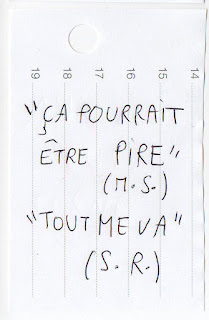 19 18 17 16 15 14
"ÇA POURRAIT
ÊTRE PIRE"
(M.S.)
"TOUT ME VA"
(S. R.)